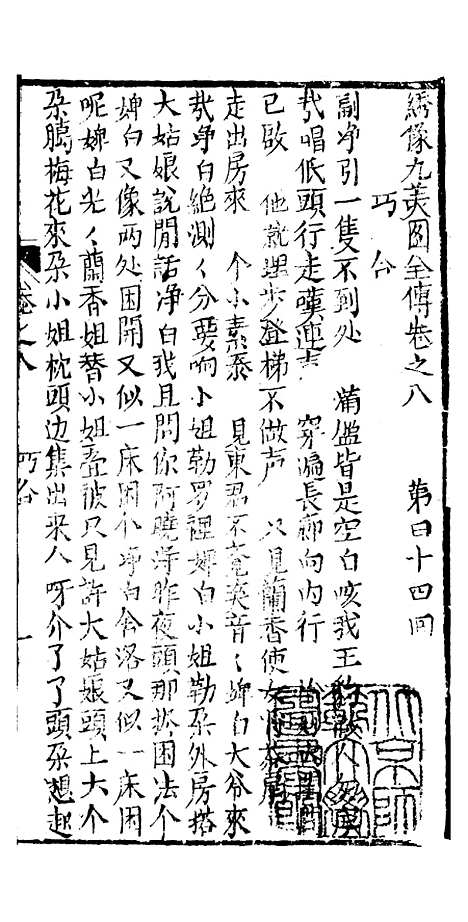 绣像九美图全傳卷之八　第四十四回
巧合
副净引一隻不到处　满盤皆是空白咳我王
哉唱低头行走嘆連声　穿遍長廊向内行
已啟　他就進步登梯不做声　只見蘭香使女
走出房來　个小素泰　見東君不覚笑音〻婢白大爷來
哉净白絶測〻分要响小姐勒罗裡婢白小姐勒朶外房搭
大姑娘說閒話净白我且問你阿曉得昨夜頭那捺困法个
婢白又像两处困開又似一床困个净白舍洛又似一床困
呢婢白光〻蘭香姐替小姐叠被只見許大姑娘頭上大个
朶臈梅花來朶小姐枕頭边集出來人呀介了了頭朶想起
卷之八　巧合　一